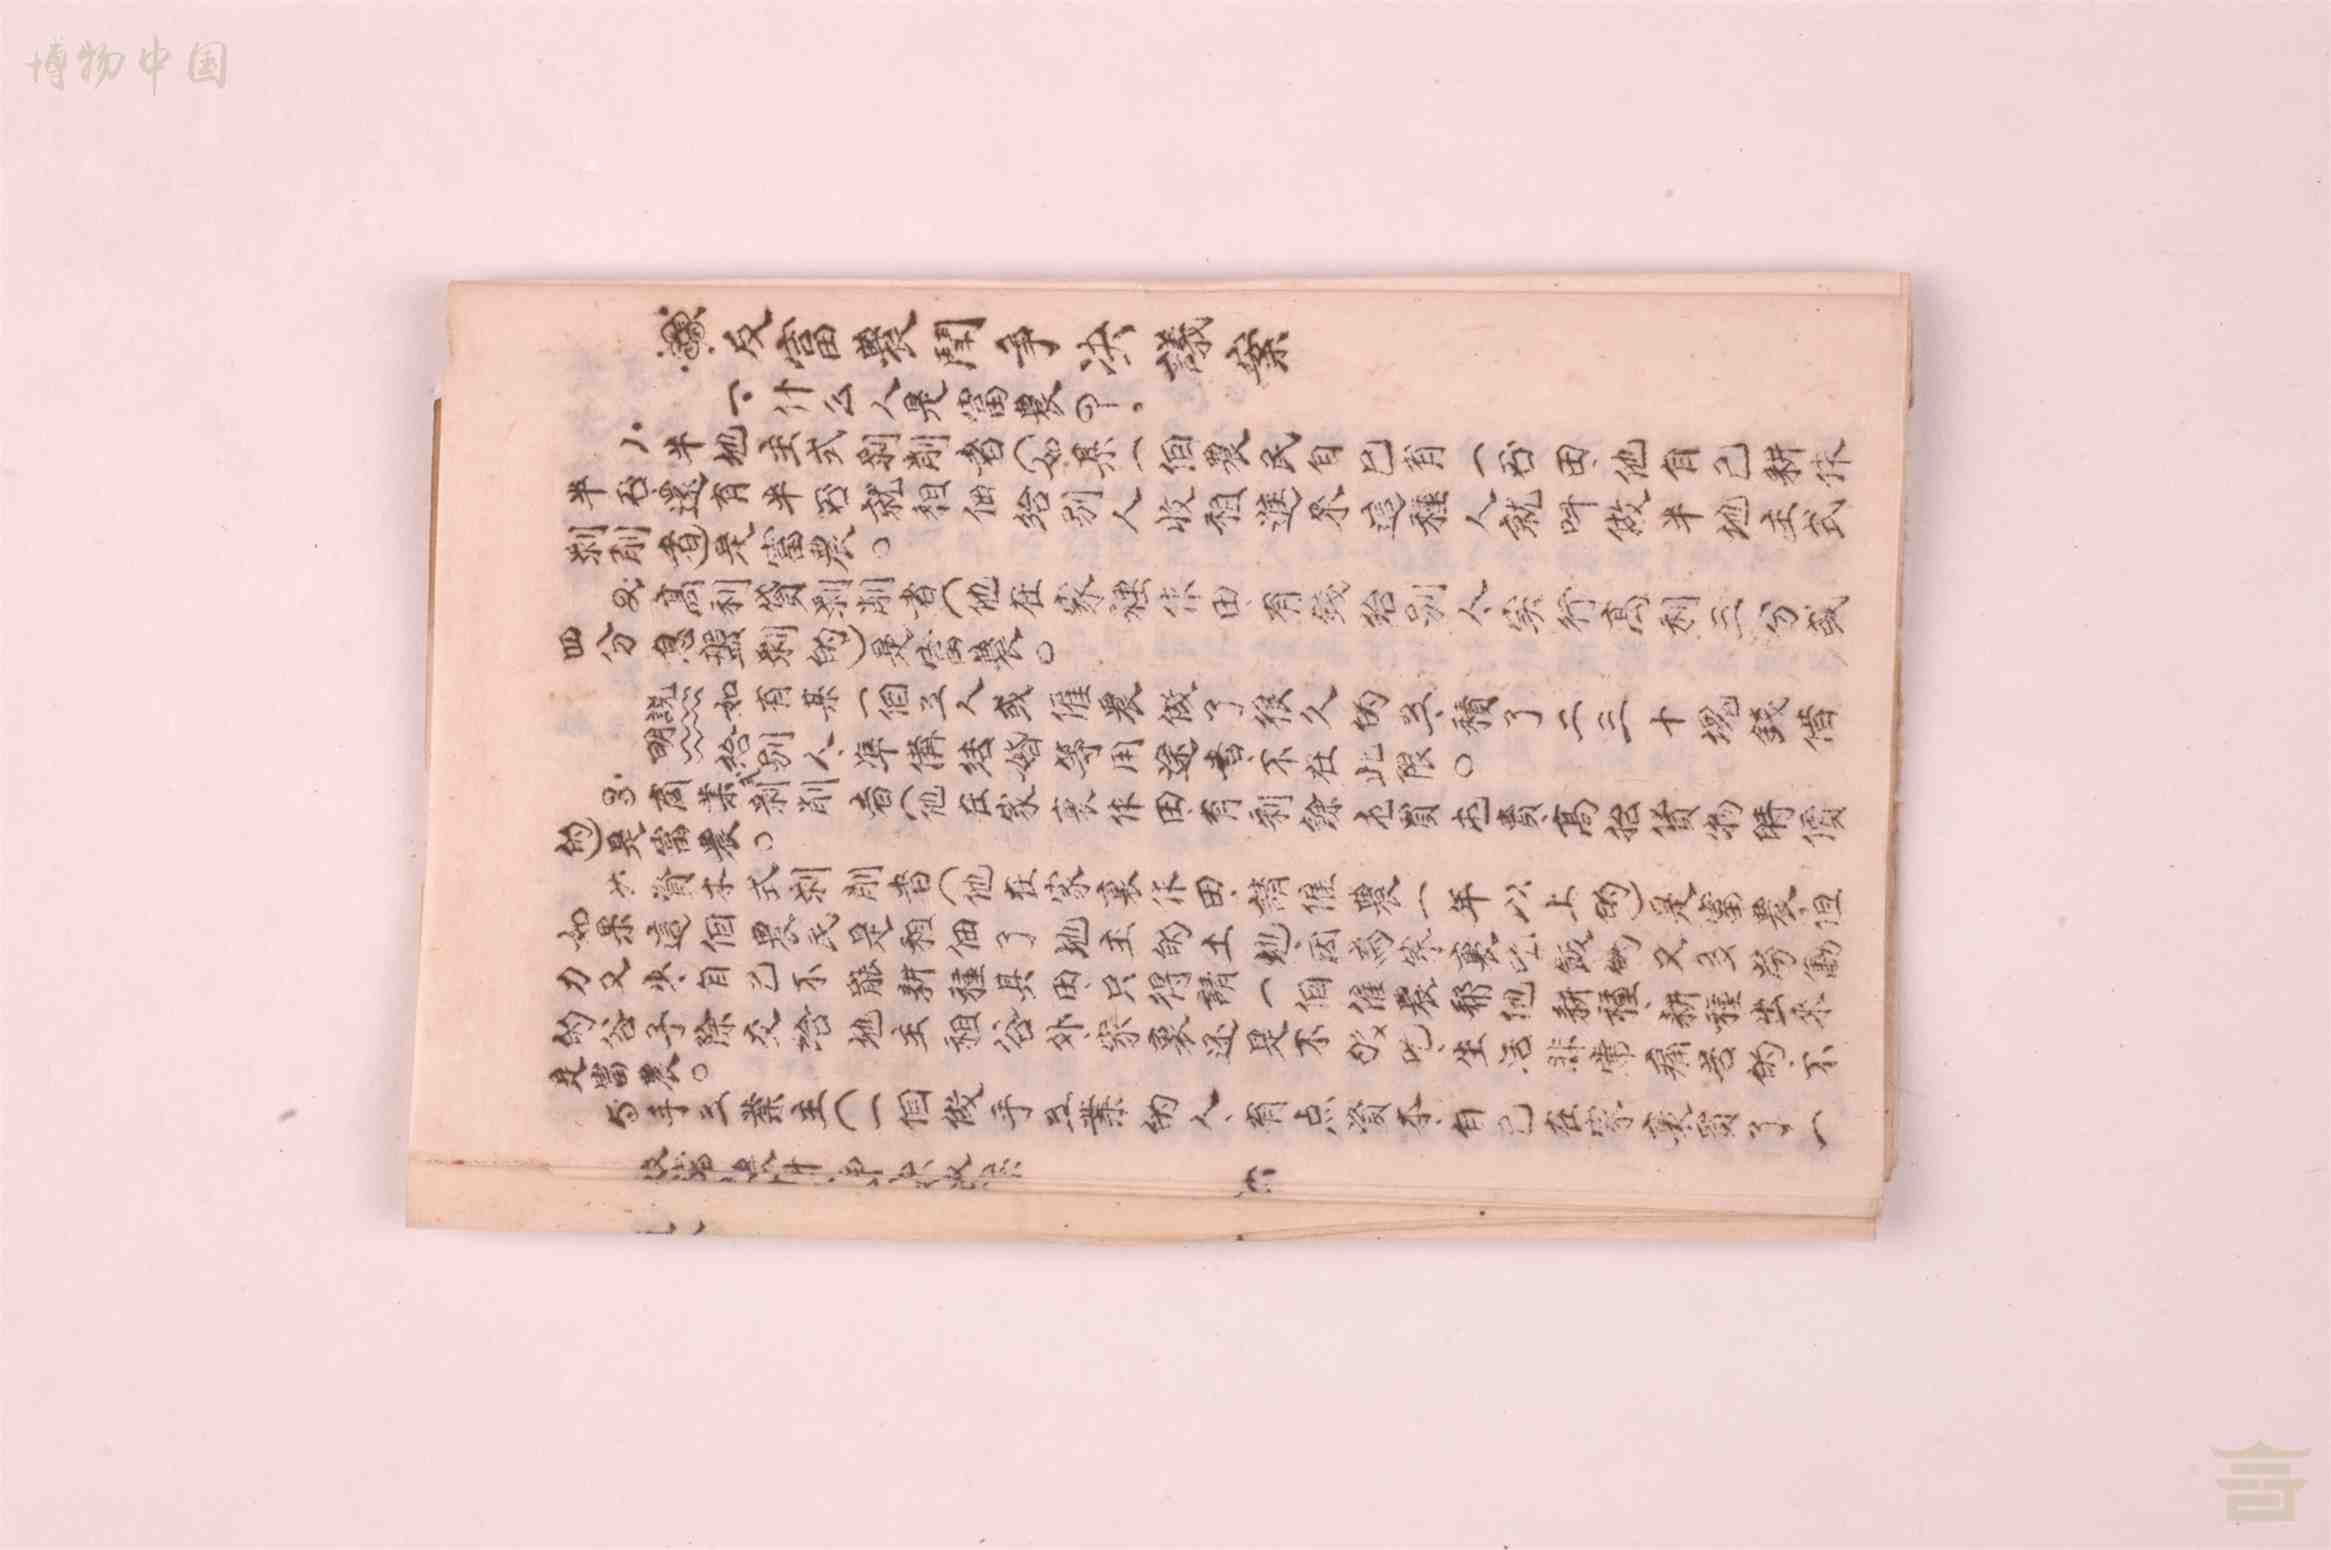 博物中国
反富農鬥爭決議案
一、什么人是富農？
1.半地主式剝削者(如某一個農民自己有一石田、他自己耕作
半石還有半石就租佃給別人收租進來這種人就叫做半地主式
剝削者)是富農。
2.高利貸剝削者(他在家裡作田、有錢給別人、实行高利三分或
四分息盤剝的)是富農。
說明 如有某一個工人或僱農做了很久的工、積了二三十塊錢借
給別人、準備結婚等用途者、不在此限。
3.商業式剝削者(他在家裏作田、有剩餘
的)是富農。
4.資本式剝削者(他在家裏作田、請僱農一年以上的)是富農、但
如果這個農民是租佃了地主的土地、因為家裏吃飯的又多勞働
力又少、自己不能耕種其田、只得請一個僱農帮他耕種、耕種出來
的谷子除交給地主租谷外、家裏还是不夠吃、生活非常痛苦的、不
是富農。
5.手工業主(一個做手工業的人、有点資本、自己在家裏